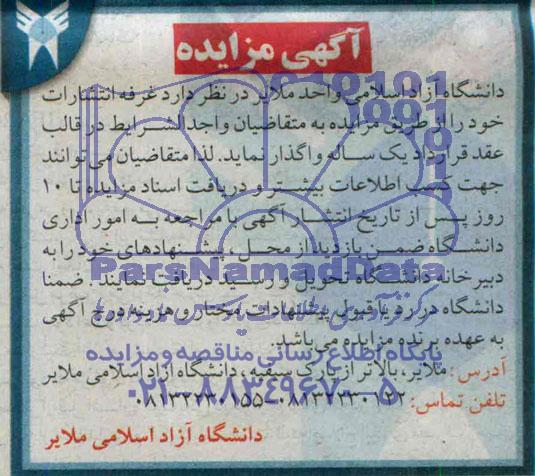 آگهی مزایده
دانشگاه آزاد اسلامی واحد ملایر در نظر دارد غرفه انتشارات
خود را از طریق مزایده به متقاضیان واجد الشرایط در قالب
عقد قرارداد یک ساله واگذار نماید. لذا متقاضیان می توانند
جهت کسب اطلاعات بیشتر و دریافت اسناد مزایده تا ۱۰
روز پس از تاریخ انتشار آگهی با مراجعه به امور اداری
دانشگاه ضمن بازدید از محل، پیشنهادهای خود را به
ParsNamadData
دبیرخانه دانشگاه تحویل و رسید دریافت نمایند. ضمنا
دانشگاه در رد یا قبول پیشنهادات مختار و هزینه درج آگهی
به عهده برنده مزایده می باشد.
پایگاه اطلاع رسانی مناقصه و مزایده
آدرس: ملایر، بالاتر از پارک سیفیه، دانشگاه آزاد اسلامی ملایر
۰۲۱-۸۸۳۴۹۶۷۰-۵
تلفن تماس:
دانشگاه آزاد اسلامی ملایر